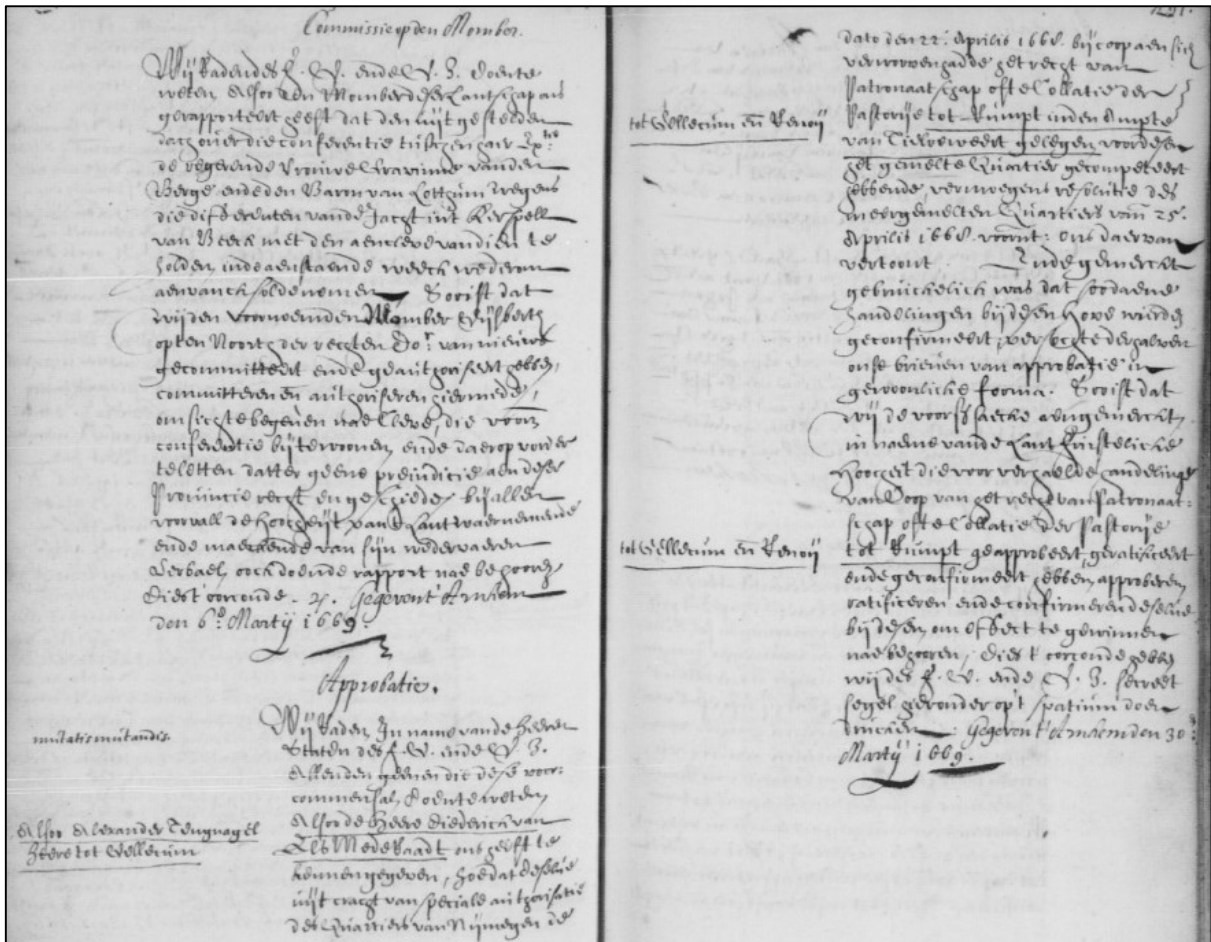 Commissie op den Momber.
Wij Raden des F. G. ende G. Z. doen te
weten Alsoo den Momber deser Lantschap ans
gerapporteert heeft dat den uijtgestelden
dach over die conferentie tusschen haer Ex:tie
de regerende Vrouwe Gravinne vanden
Berge ende den Baron van Lottum wegens
die differenten van de Jacht int Kerspell
van Beeck met den aencleve van dien te
holden, inde aenstaende weeck wederom
aenvanck solde nemen Soo ist dat
wij den voornoemden Momber Gijsbert
op ten Noort, der rechten Do:r van nieuws
gecommitteert ende geauthoriseert hebben,
committeren en authoriseren hiermede,
om sich te begeven nae Cleve, die voorn
conferentie bij te woonen, ende daerop vorder
te letten datter geene prejuditie aen deser
Provincie recht en geschiede, bij allen
voorvall de Hoocheijt van 't Lant waernemende
ende maeckende van sijn wedervaeren
Verbael, oock doende rapport nae behooren
Diest oirconde. Gegeven t' Arnhem
den 6:e Martij 1669
Approbatie.
mutatis mutandis
Wij Raden, In name vande Heeren
Staten des F. G. ende G. Z.
Allen den geenen die dese voor-
commen sal, doen te weten,
Alsoo Alexander Tengnagel
Heere tot Gellicum
Alsoo de Heere Diederick van
Els Mede Raadt ons heeft te
kennen gegeven, hoe dat deselve
uijt cracht van speciale authorisatie
des Quartiers van Nijmegen de
dato den 22: Aprilis 1668. bij coop aen sich
verworven hadde het recht van
Patronaatschap ofte Collatie der
tot Gellicum en Renoij
Pastorije tot Rumpt inden Ampte
van Tielreweert gelegen voordesen
het gemelte Quartier gecompeteert
hebbende, vermogens resolutie des
meergemelten Quartiers van 25:
Aprilis 1668. voornt: ons daer van
vertoont. Ende gemerckt
gebruickelich was dat soodaene
handelingen bij desen Hove wierden
geconfirmeert, versochte derhalven
onse brieven van approbatie in
gewoonlicke forma Soo ist dat
wij de voors saecke aengemerckt,
in naeme vande Lantfurstelicke
Hoocheit die voor verhaelde handelinge
van Coop van het recht van Patronaat-
schap ofte Collatie der Pastorije
tot Gellicum en Renoij
tot Rumpt geapprobeert, geratificeert
ende geconfirmeert hebben, approberen,
ratificeren ende confirmeren deselve
bij desen om effect te gewinnen
nae behooren, Dies t' oirconde hebben
wij des F. G. ende G. Z. secreet
segel hieronder op't spatium doen
drucken. Gegeven t' Arnhem den 30:
Martij 1669.